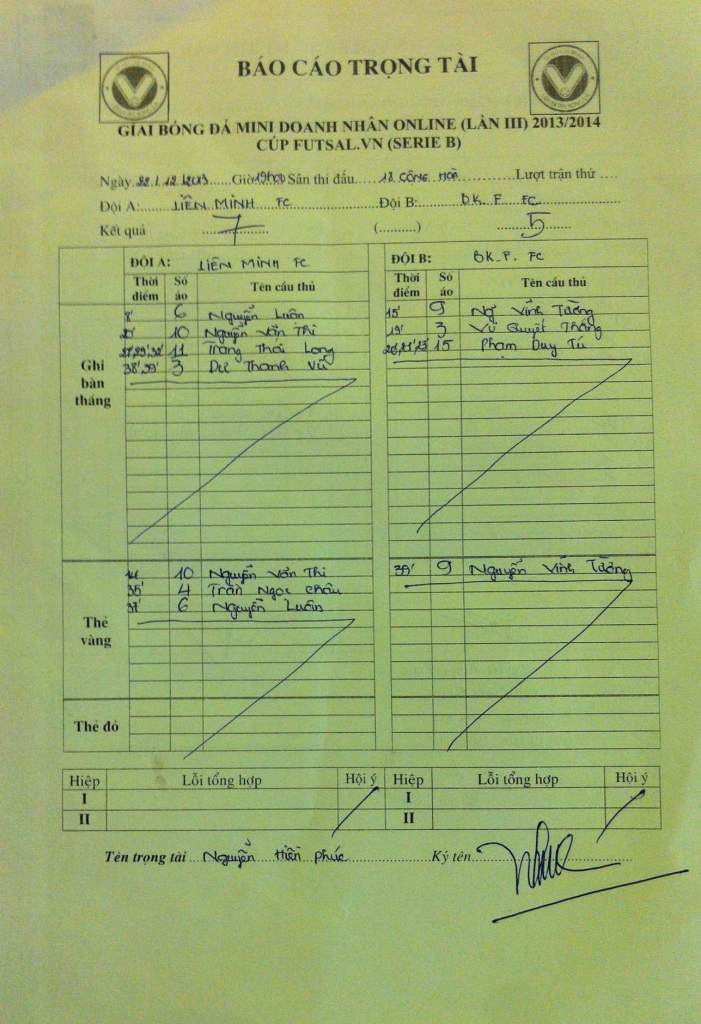 BÁO CÁO TRỌNG TÀI
GIẢI BÓNG ĐÁ MINI DOANH NHÂN ONLINE (LẦN III) 2013/2014
CÚP FUTSAL.VN (SERIE B)
Ngày 22/12/2013 Giờ 19h00 Sân thi đấu 18 CỘNG HOÀ Lượt trận thứ ....
Đội A: LIÊN MINH FC Đội B: B.K.F FC
Kết quả 7 (..........) 5
ĐỘI A: LIÊN MINH FC ĐỘI B: BK.F. FC
Thời điểm Số áo Tên cầu thủ Thời điểm Số áo Tên cầu thủ
Ghi bàn thắng
8' 6 Nguyễn Luân 15' 9 Ng Vĩnh Tường
10 Nguyễn Văn Thi 19' 3 Vũ Quyết Thắng
11 Trang Thái Long 15 Phạm Duy Tú
38',39' 3 Dư Thanh Vũ
Thẻ vàng
10 Nguyễn Văn Thi 35' 9 Nguyễn Vĩnh Tường
35' 4 Trần Ngọc Châu
37' 6 Nguyễn Luân
Thẻ đỏ
Hiệp Lỗi tổng hợp Hội ý Hiệp Lỗi tổng hợp Hội ý
I I
II II
Tên trọng tài Nguyễn Hiền Phúc Ký tên